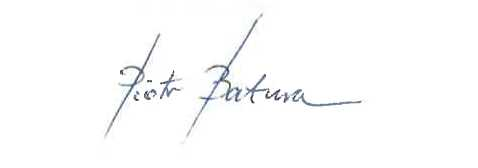 Piotr Batura